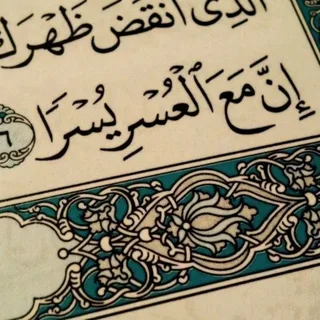 الَّذِي أَنْقَضَ ظَهْرَكَ
إِنَّ مَعَ الْعُسْرِ يُسْرًا ٦